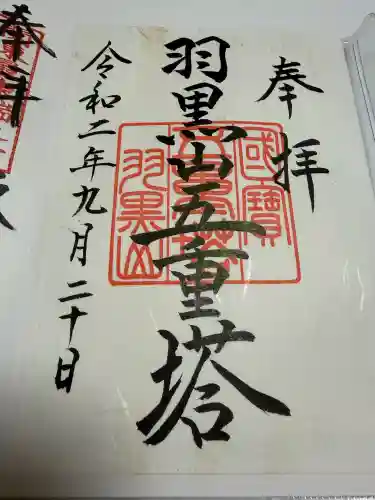 奉拝
羽黒山五重塔
國寶
五重塔
羽黒山
令和二年九月二十日
奉拝